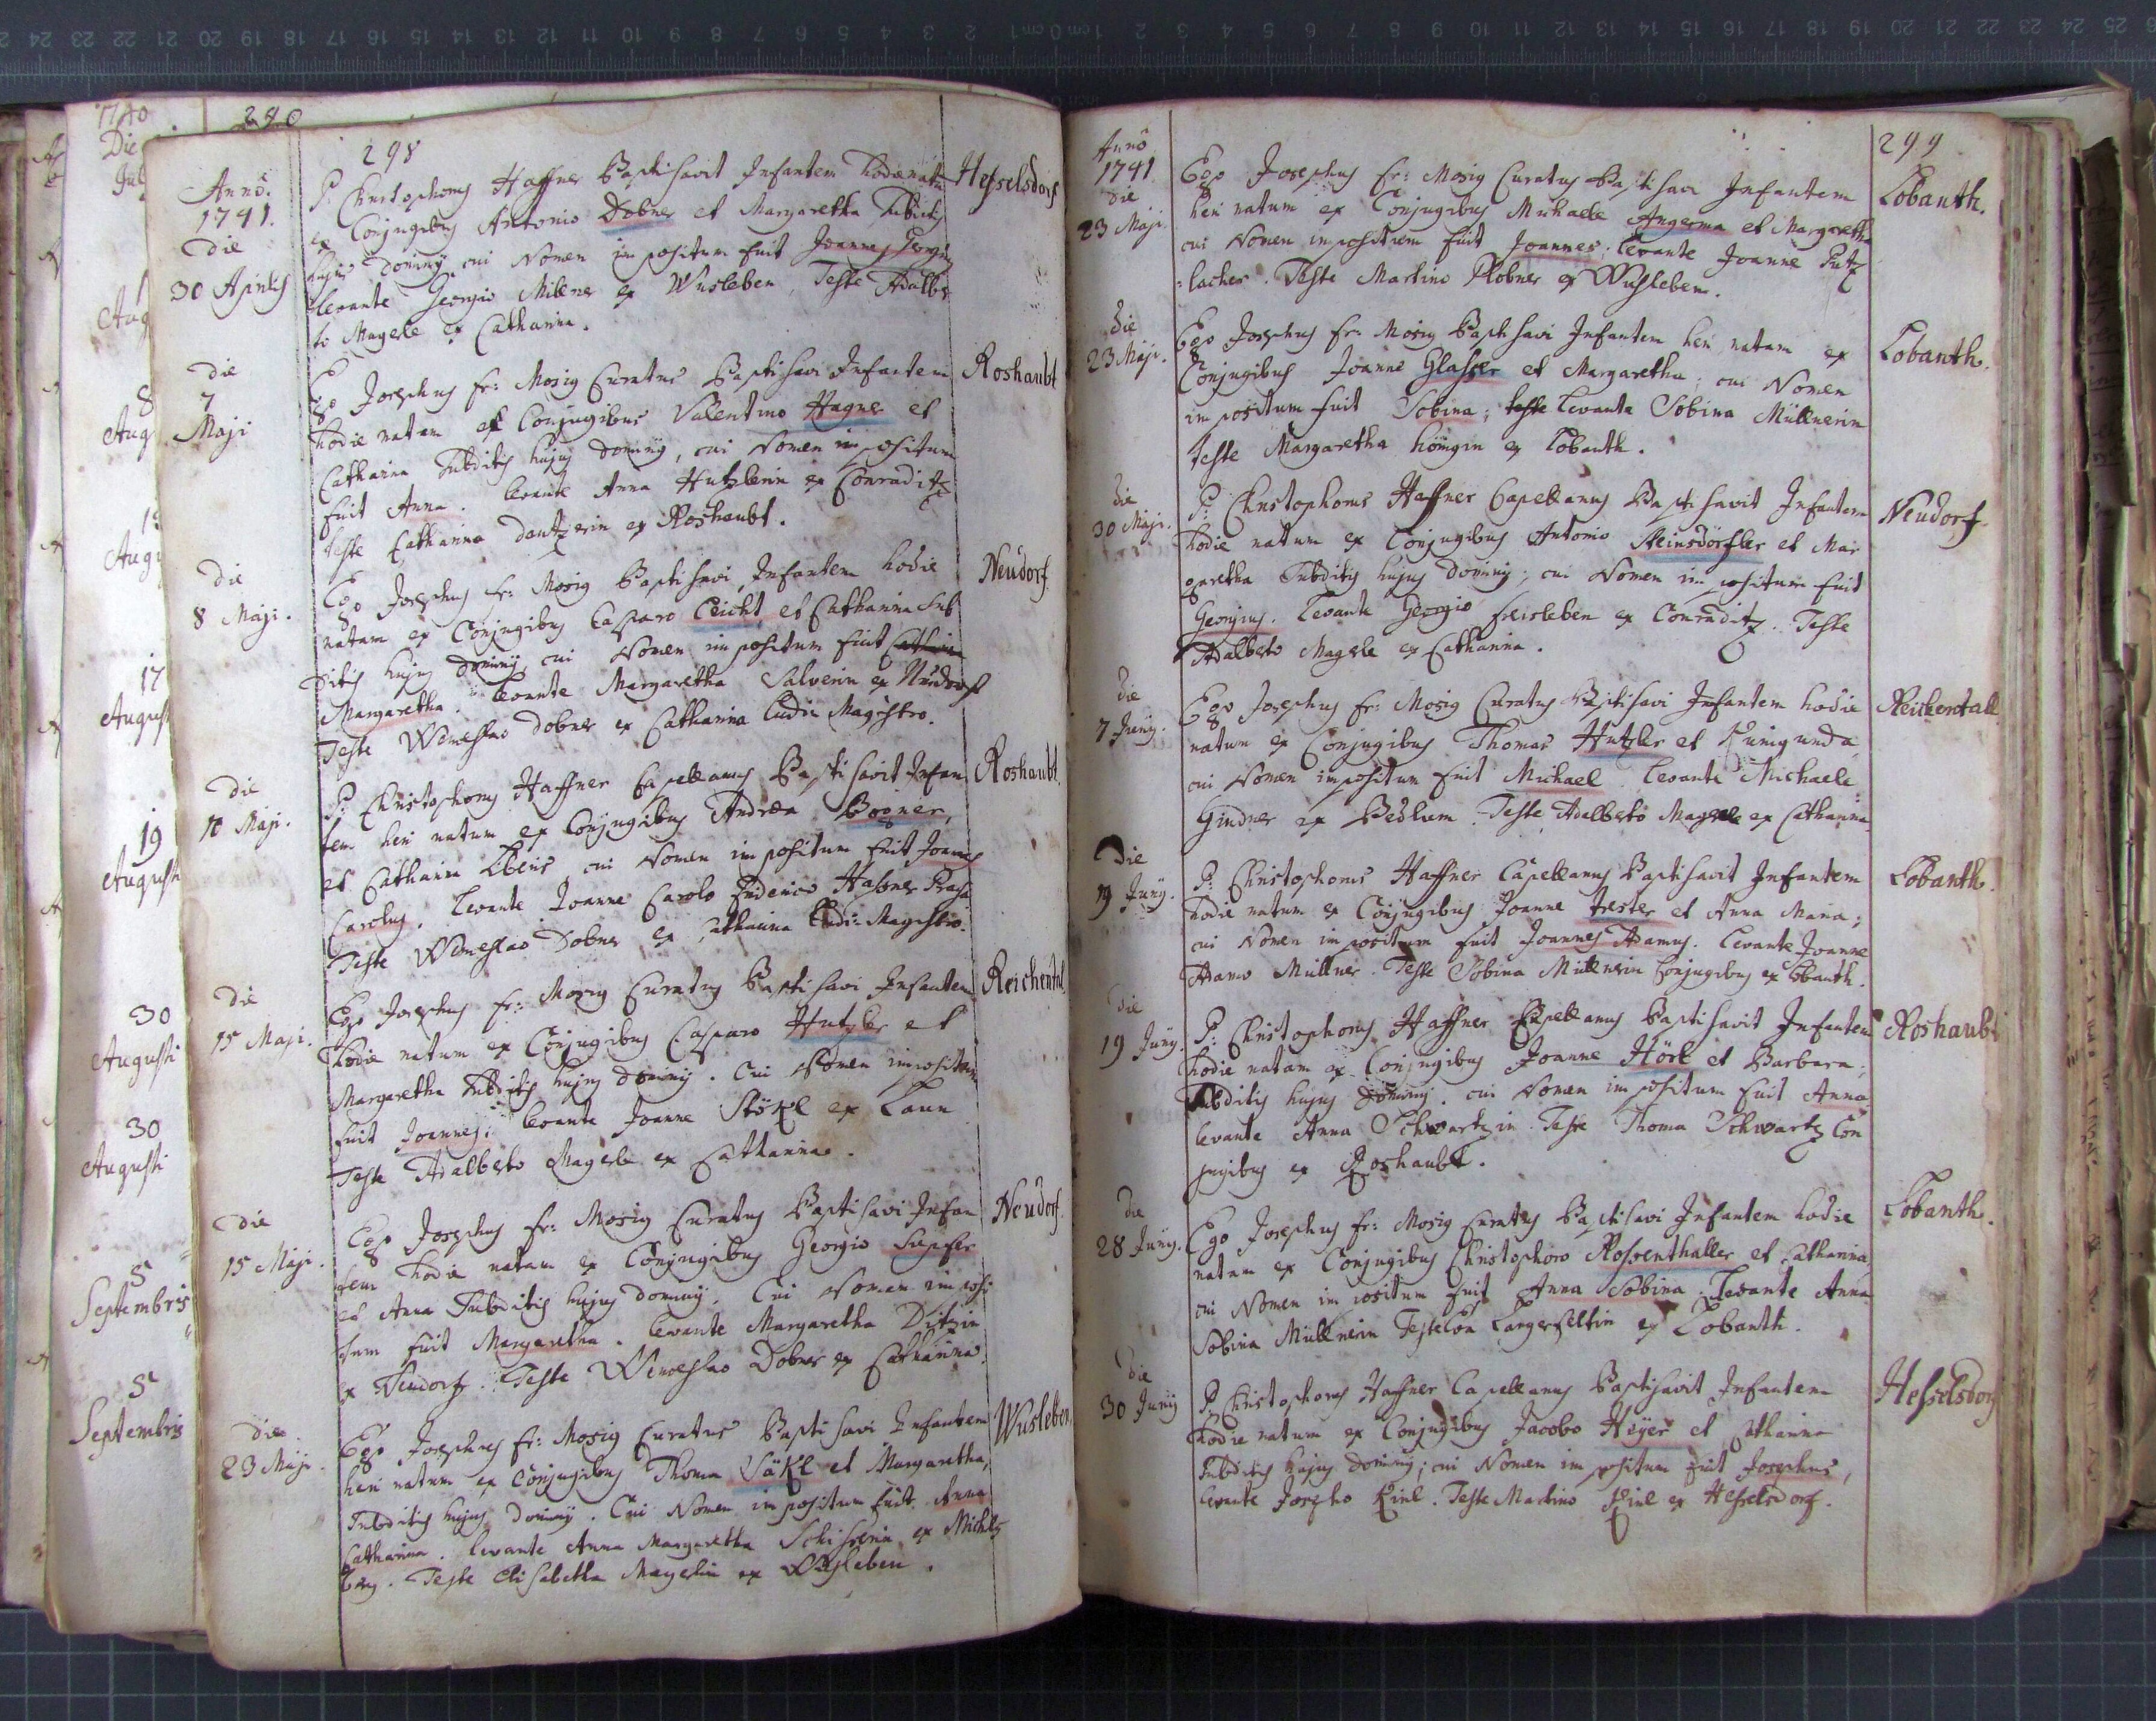 1740
Die
290
298
Anno.
1741.
Die
30 Aprilis
P: Christophorus Haffner Baptisavit Infantem hodie natum
ex Conjugibus Antonio Dobner et Margaretha Subditis
hujus dominÿ, cui Nomen impositum fuit Joannes Georgius
levante Georgio Milner ex Wusleben, Teste Adalber
to Magerle ex Catharina.
Hesselsdorf
Die
7
Maji
Ego Josephus fr: Mosig Curatus Baptisavi Infantem
hodie natam ex Conjugibus Valentino Hagner et
Catharina Subditis hujus dominÿ, cui Nomen impositum
fuit Anna. levante Anna Hutzlerin ex Conraditz
teste Catharina dantzerin ex Roshaubt.
Roshaubt
Die
8 Maji.
Ego Josephus fr: Mosig Baptisavi Infantem hodie
natam ex Conjugibus Casparo Leicht et Catharina Sub
ditis hujus dominÿ, cui Nomen impositum fuit
Margaretha. levante Margaretha Salverin ex Neudorf
Teste Wenceslao Dobner ex Catharina Ludi Magistro.
Neudorf
Die
Maji.
P: Christophorus Haffner Capellanus Baptisavit Infan
tem heri natum ex Conjugibus Andrea Bogner,
et Catharina Liberis, cui Nomen impositum fuit Joannes
Carolus. levante Joanne Carolo Friderico
Teste Wenceslao Dobner ex Catharina Ludi Magistro.
Roshaubt
Die
15 Maji.
Ego Josephus fr: Mosig Curatus Baptisavi Infantem
hodie natum ex Conjugibus Casparo Hutzler et
Margaretha Subditis hujus dominÿ. Cui Nomen impositum
fuit Joannes; levante Joanne Stökl ex
Teste Adalberto Magerle ex Catharina.
Reichental
Die
15 Maji.
Ego Josephus fr: Mosig Curatus Baptisavi Infan
tem hodie natam ex Conjugibus Georgio
et Anna Subditis hujus dominÿ. Cui Nomen imposi
tum fuit Margaretha. levante Margaretha Ditzin
ex Neudorf. Teste Wenceslao Dobner ex Catharina.
Neudorf.
Die
23 Maji.
Ego Josephus fr: Mosig Curatus Baptisavi Infantem
heri natam ex Conjugibus Thoma Säkl et Margaretha,
Subditis hujus dominÿ. Cui Nomen impositum fuit Anna
Catharina. levante Anna Margaretha ex Michls
berg. Teste Elisabetha Magerlin ex Wusleben.
Wusleben
Anno
1741
Die
23 Maji.
299
Ego Josephus fr: Mosig Curatus Baptisavi Infantem
heri natum ex Conjugibus Michaele Angerma et Margaretha
cui Nomen impositum fuit Joannes; levante Joanne Putz
=lacher. Teste Martino Plobner ex Wusleben.
Lobanth.
Die
23 Maji.
Ego Josephus fr: Mosig Baptisavi Infantem heri natam ex
Conjugibus Joanne Glasser et Margaretha; cui Nomen
impositum fuit Sobina; levante Sobina Müllnerin
teste Margaretha hönigin ex Lobanth.
Lobanth.
Die
30 Maji.
P: Christophorus Haffner Capellanus Baptisavit Infantem
hodie natum ex Conjugibus Antonio Reinsdörfler et Mar
garetha Subditis hujus dominÿ; cui Nomen impositum fuit
Georgius. levante Georgio freisleben ex Conraditz. Teste
Adalberto Magerle ex Catharina.
Neudorf.
Die
7 Junÿ.
Ego Josephus fr: Mosig Curatus Baptisavi Infantem hodie
natum ex Conjugibus Thomas Hutzler et Kunigunda
cui Nomen impositum fuit Michael levante Michaele
Gindner ex Teste Adalberto Magerle ex Catharina.
Reichentall
Die
19 Junÿ.
P: Christophorus Haffner Capellanus Baptisavit Infantem
hodie natum ex Conjugibus Joanne trester et Anna Maria;
cui Nomen impositum fuit Joannes Adamus. levante Joanne
Adamo Müllner. Teste Sobina Müllnerin Conjugibus ex Lobanth.
Lobanth.
Die
19 Junÿ.
P: Christophorus Haffner Capellanus Baptisavit Infantem
hodie natam ex Conjugibus Joanne Hörl et Barbara;
Subditis hujus dominÿ. cui Nomen impositum fuit Anna
levante Anna Schwartzin Teste Thoma Schwartz Con
jugibus ex Roshaubt.
Roshaubt
Die
28 Junÿ.
Ego Josephus fr: Mosig Curatus Baptisavi Infantem hodie
natam ex Conjugibus Christophoro Rossenthaller et Catharina,
cui Nomen impositum fuit Anna Sobina. Levante Anna
Sobina Müllnerin Langerfeltin ex Lobanth.
Lobanth.
Die
30 Junÿ
P. Christophorus Haffner Capellanus Baptisavit Infantem
hodie natum ex Conjugibus Jacobo Heÿer et Catharina
Subditis hujus dominÿ; cui Nomen impositum fuit Josephus,
levante Josepho Kiul. Teste Martino Kiul ex Hesselsdorf.
Hesselsdorf
8
Aug
17
August
19
Augusti
30
Augusti
30
Augusti
5
Septembris
5
Septembris